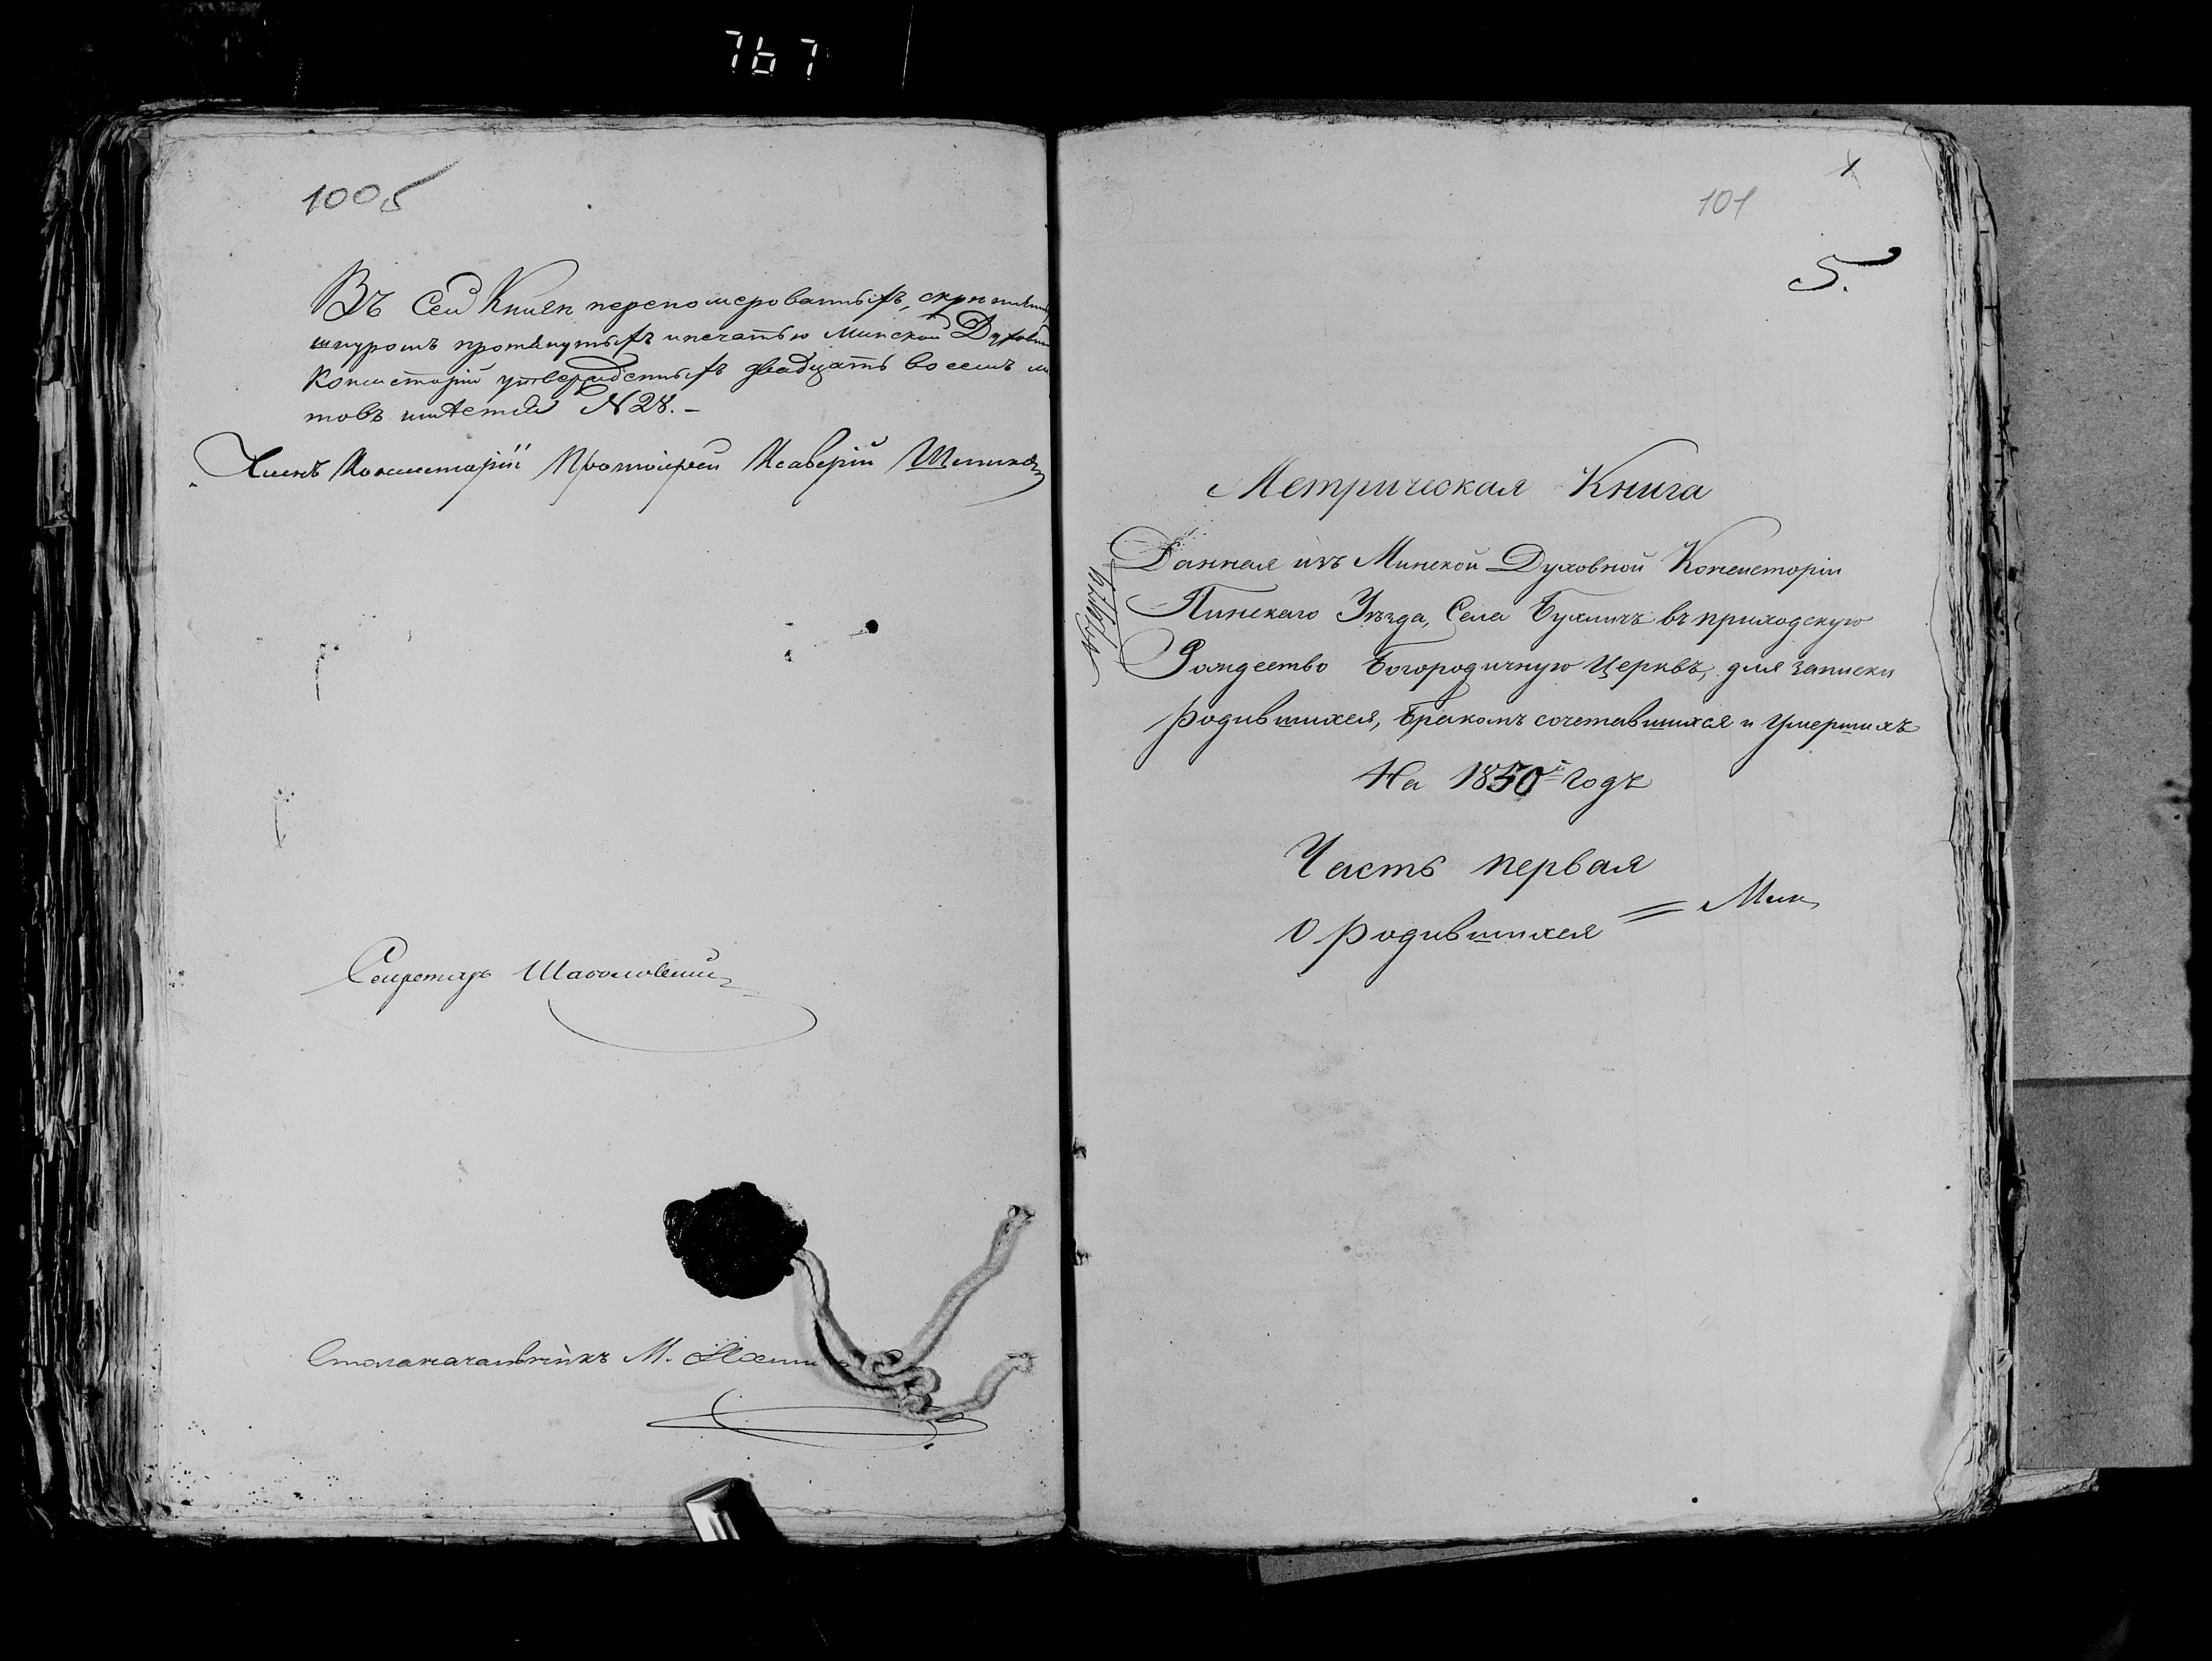 767
1005
Въ сей Книгѣ перепомерованныхъ, скрѣпленныхъ
шнуромъ протянутыхъ и печатью Минской Духовной
Консисторіи утвержденныхъ двадцать восемь лис
товъ имѣется N 28. –
Членъ Консисторіи Протоіерей Ксаверій
Секретарь
Столоначальникъ М.
101
5.
Метрическая Книга
Данная изъ Минской Духовной Консисторіи
Пинскаго Уѣзда, Села Бухличъ въ приходскую
Рождество Богородичную Церквъ, для записки
родившихся, бракомъ сочетавшихся и умершихъ
На 1850й годъ
Часть первая
О родившихся